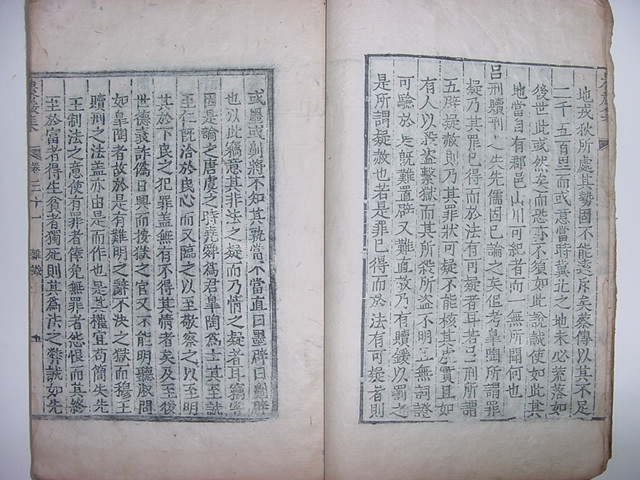 地或狄所處其勢固不能遠斥矣蔡傳以其不足
二千五百里而或意當時冀北之地未必荒落如
後世此或然矣而恐亦不須如此說誠使如此其
地當自有郡邑山川可紀者而一無所聞何也
呂刑贖刑之失先儒固已論之矣但考皐陶所謂罪
疑乃其罪已得而於法有可疑者也若呂刑所謂
五辟疑赦則乃其罪狀可疑不能核其虛實且如
有人以殺盜繫獄而其所殺所盜不明又無詞證
可驗於是旣難置辟又難直放乃有贖鍰以罰之
是所謂疑赦也若是罪已得而於法有可疑者則
或墨或劓將不知其孰當不當直曰墨辟曰劓辟
也以此竊意其非法之疑而乃情之疑者耳竊嘗
因是論之唐虞之時堯舜爲君皐陶爲士其至誠
至仁旣洽於民心而又臨之以至敬察之以至明
其於下民之犯罪蓋無有不得其情者矣及至後
世德衰詐僞日興而按獄之官又不能明聽問
如皐陶者故於是有難明之辭不決之獄而穆王
贖刑之法蓋亦由是而作也是其權宜苟簡失先
王制法之意使有罪者倖免無罪者怨恨而其終
至於富者得生貧者獨死則其爲法之弊誠如先
卷三十一 雜著 五